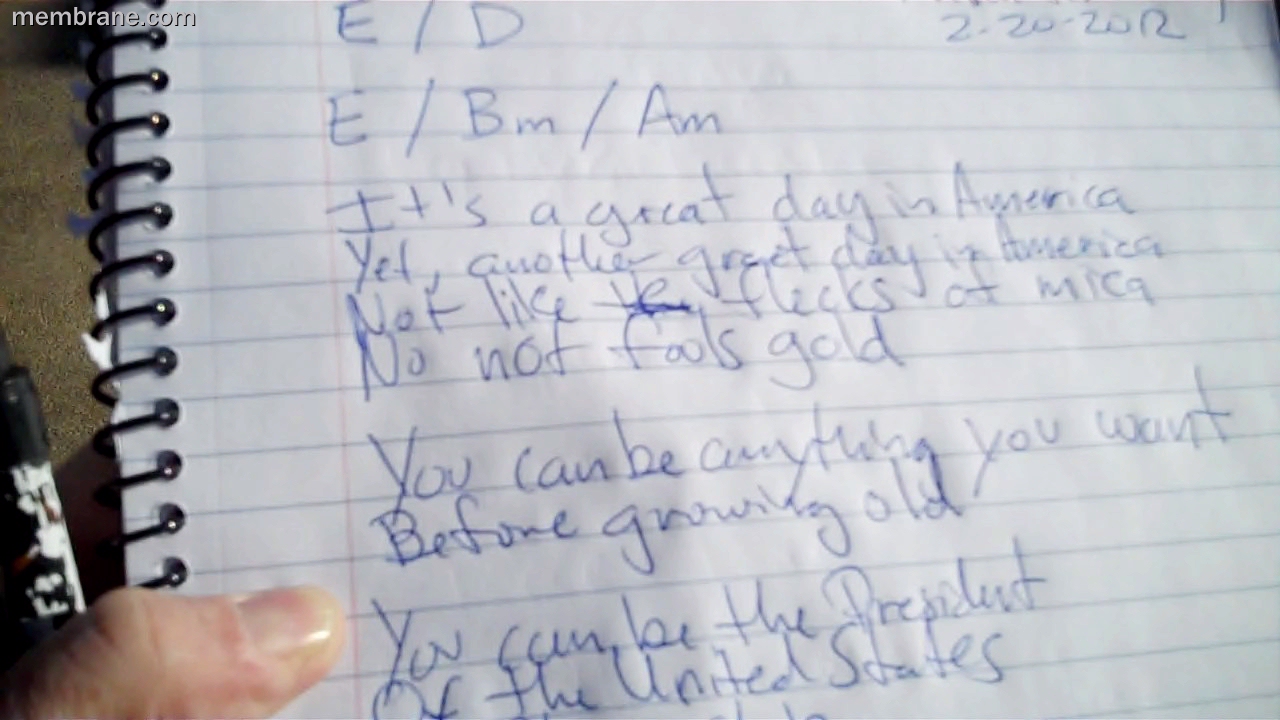 membrane.com
E / D
2-20-2012
E / Bm / Am
It's a great day in America
Yet, another great day in America
Not like flecks of mica
No not fools gold
You can be anything you want
Before growing old
You can be the President
Of the United States